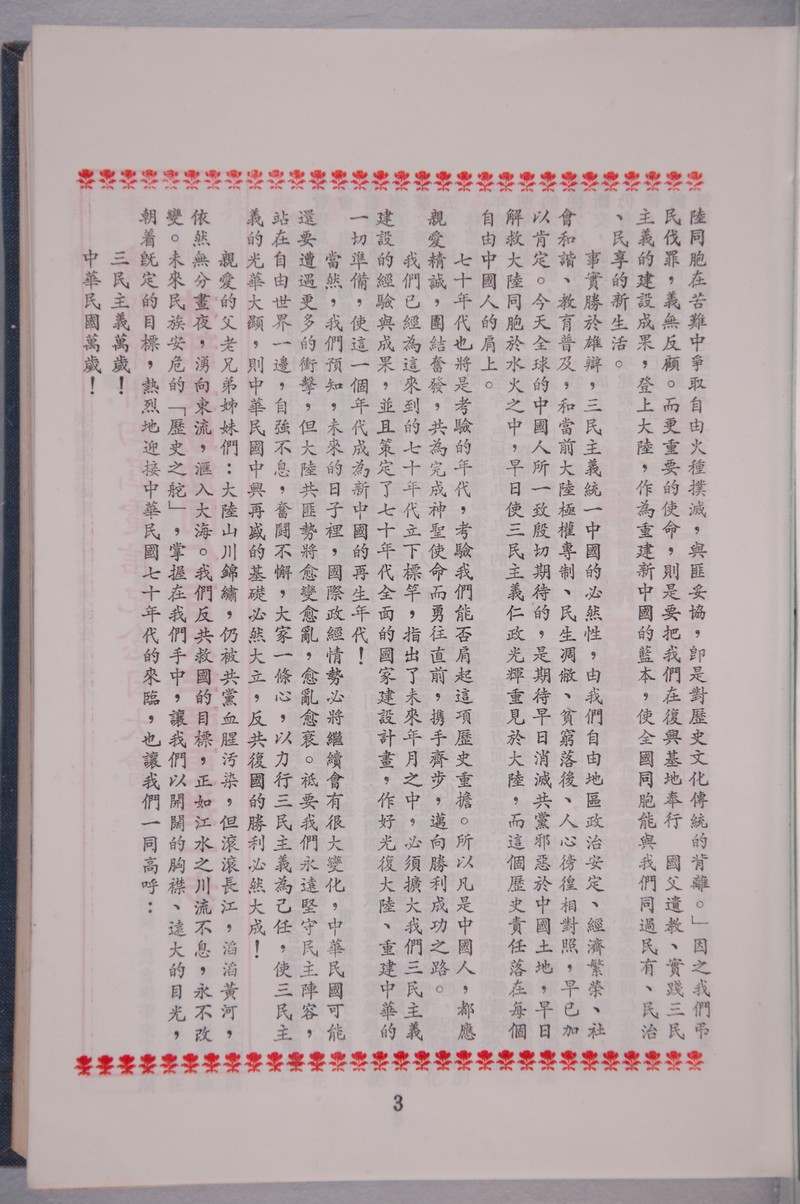 陸同胞在苦難中爭取自由火種撲滅，與匪妥協，卽是對歷史文化傳統的背離。」因之我們弔
民伐罪，義無反顧。而更重要的使命，則是要把我們在復興基地奉行　國父遺教、實踐三民
主義的建設成果，登上大陸，作為重建新中國的藍本，使全國同胞能與我們同過民有、民治
、民享的新生活。
事實勝於雄辯，三民主義統一中國的必然性，由我們自由地區政治安定、經濟繁榮、社
會和諧、教育普及，和當前大陸極權專制、民生凋敝、貧窮落後、人心徬徨相對照，早已加
以肯定。今天全球的中國人所一致殷切期待的，是期待早日消滅共黨邪惡於中國土地，早日
解救大陸同胞於水火之中，早日使三民主義仁政光輝重見於大陸，而這個歷史責任落在每個
自由中國人的肩上。
七十年代也將是考驗的年代，考驗我們能否肩起這項歷史重擔。所以凡是中國人，都應
親愛精誠，團結奮發，共為完成神聖使命而勇往直前，携手齊步，邁向勝利成功之路。
我們已經為這來到的七十年代立下標竿，指出了未來年月之中，必須擴大我們三民主義
建設的經驗與成果，並且策定了七十年代全面的國家建設計畫，作好光復大陸、重建中華的
一切準備，使這一個年代成為新中國的再生年代！
當然，我們預知，未來的日子裡，國際政經情勢必將繼續會有很大變化，中華民國可能
還要遭遇更多的衝擊，但大陸共匪勢將愈變愈亂，愈亂愈衰。祗要我們永遠堅守民主陣容，
站在自由世界一邊，自強不息，奮鬪不懈，大家一條心，以力行三民主義為己任，使三民主
義的光華大顯，則中華民國中興再盛的基礎必然大立，反共復國的勝利必然大成！
親愛的父老兄弟姊妹們：大陸山川錦繡，仍被共黨血腥污染，但滾滾長江，滔滔黃河，
依然無分晝夜，湧向東流，滙入大海。我們反共救國的目標，正如江水之川流不息，永不改
變。未來民族安危的「歷史之舵」，掌握在我們手中，讓我們以開闊的胸襟、遠大的目光，
朝着旣定的目標，熱烈地迎接中華民國七十年代的來臨，也讓我們一同高呼：
三民主義萬歲！
中華民國萬歲！
3